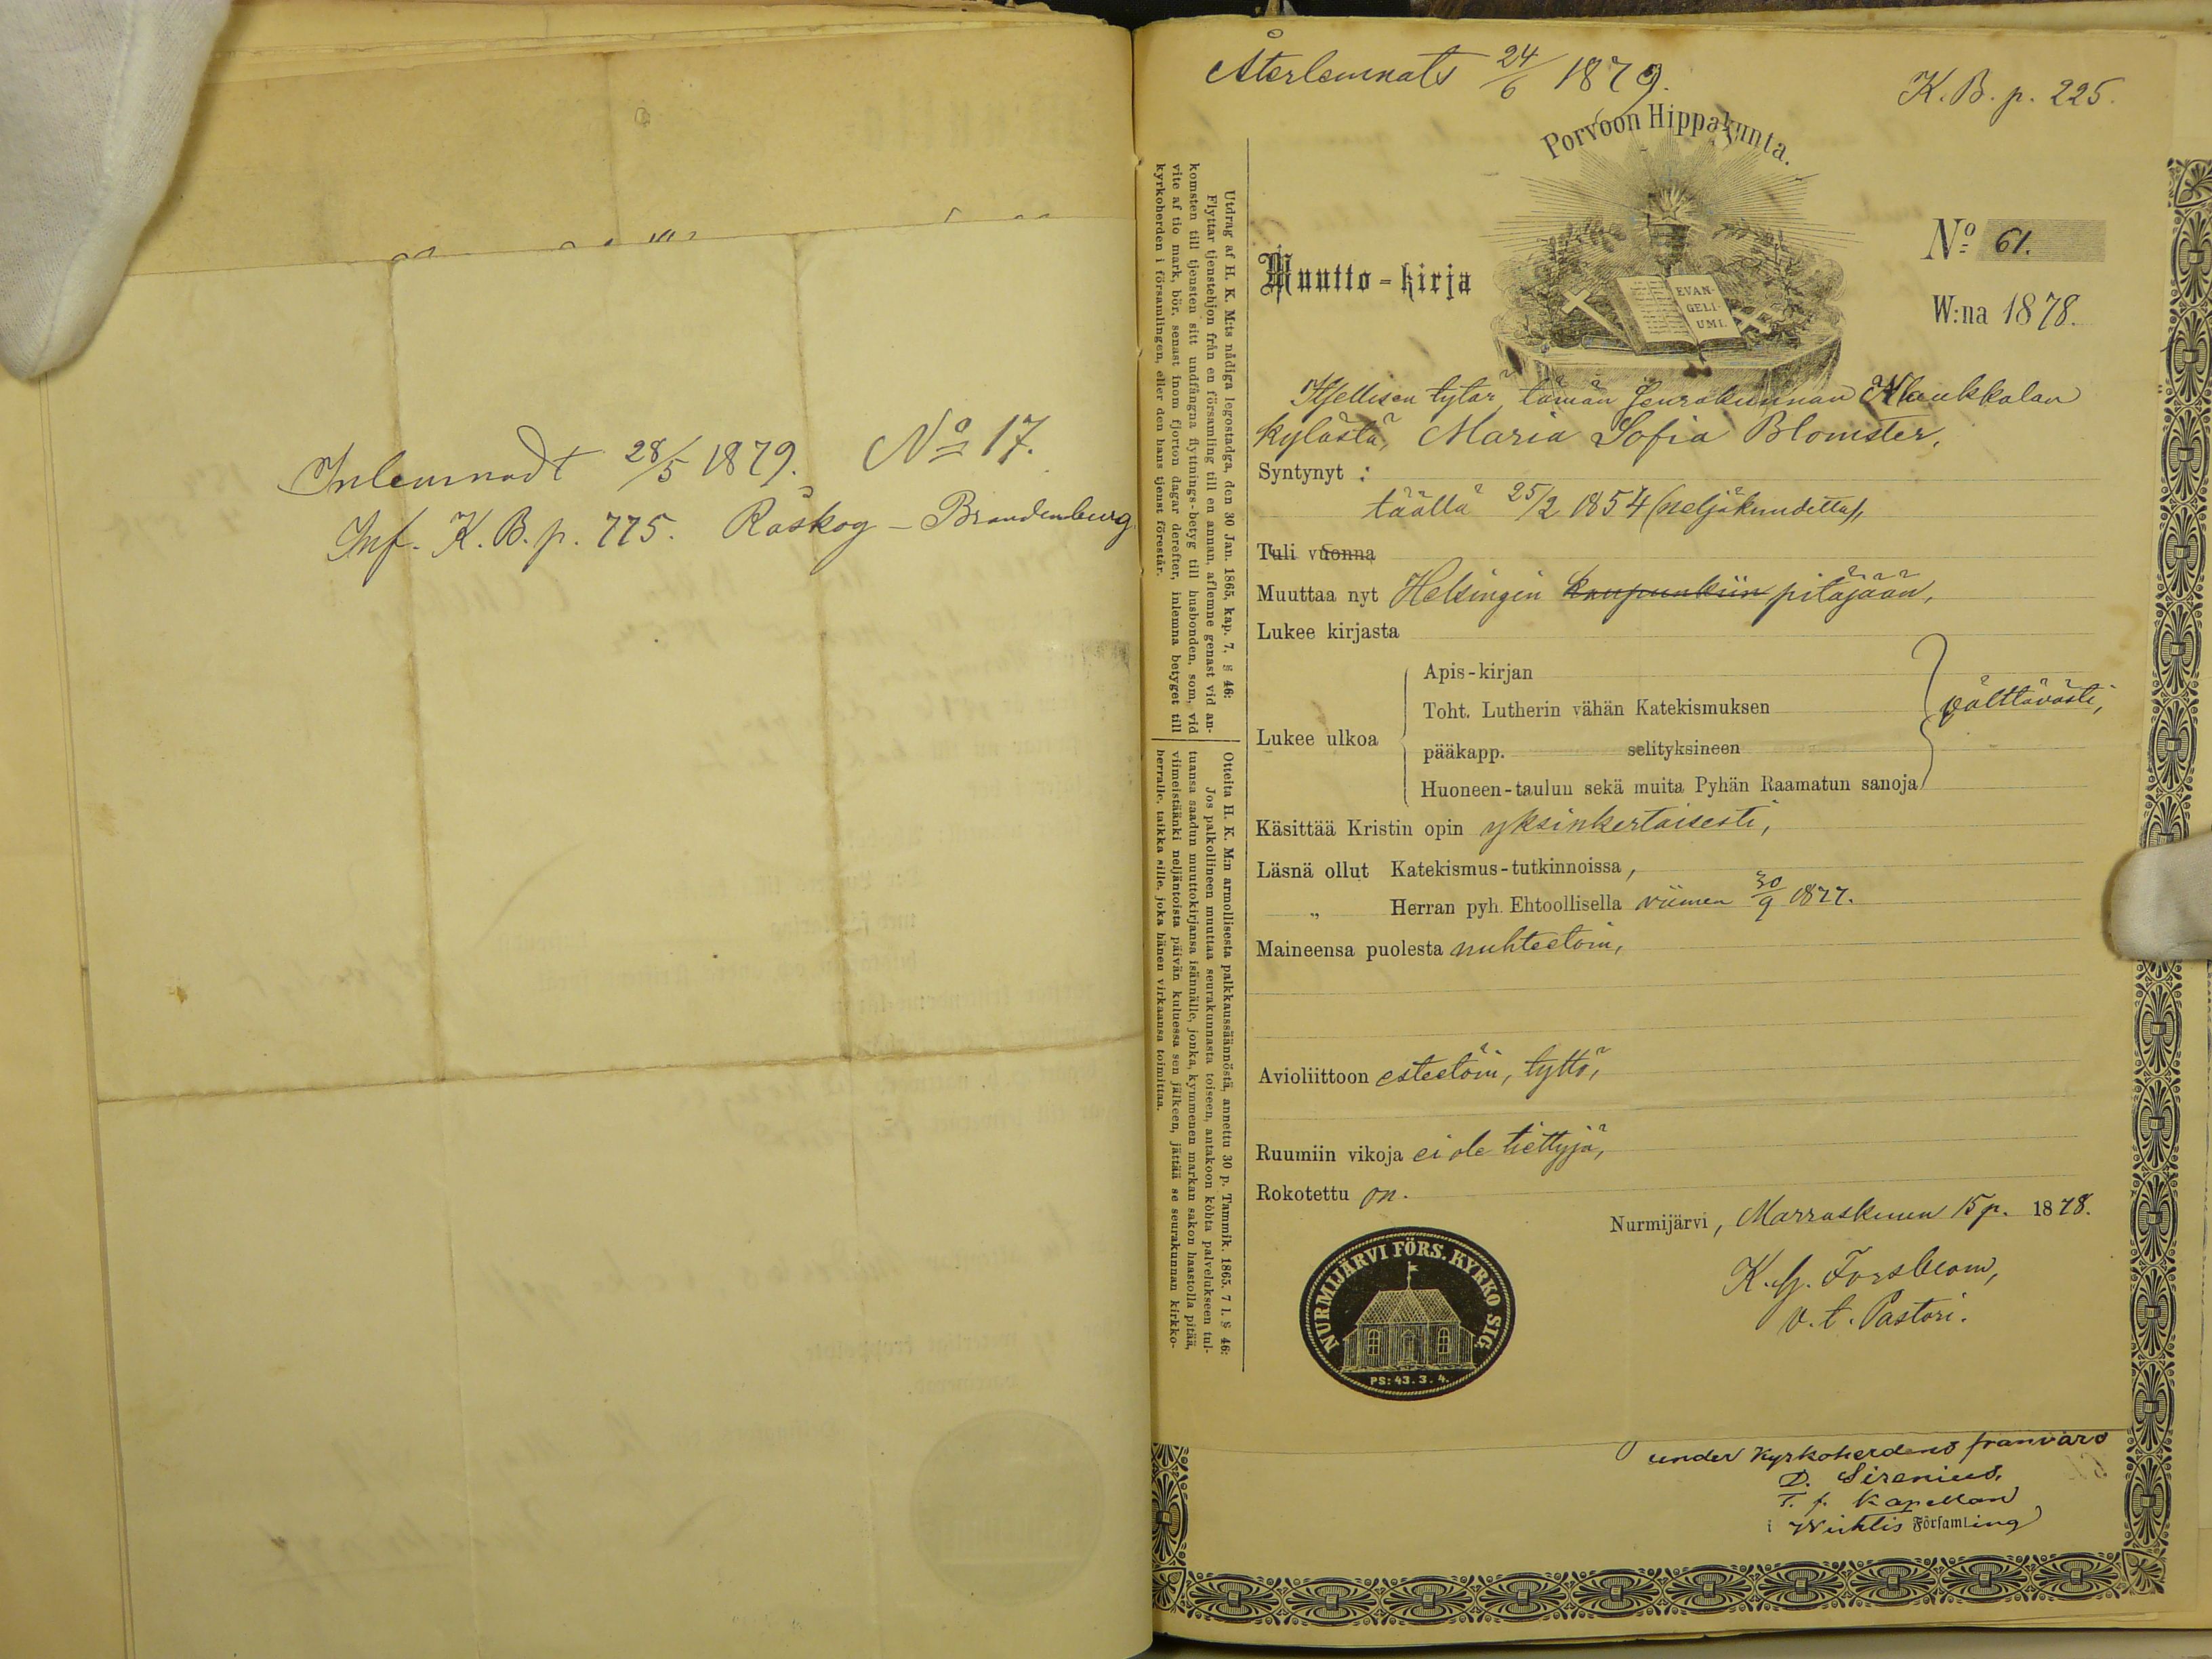 Inlemnadt 28/5 1879. No 17.
Inf. K. B. p. 775. Råskog - Brandenburg
Återlemnats 24/6 1879.
K. B. p. 225.
Porvoon Hippakunta.
EVAN-
GELI-
UMI.
Muutto-kirja
No 61.
W:na 1878.
Itsellisen tytär tämän Seurakunnan Klaukkalan
kylästä, Maria Sofia Blomster,
Syntynyt :
täällä 25/2 1854 (neljäkuudetta),
Tuli vuonna
Muuttaa nyt Helsingin kaupunkiin pitäjään,
Lukee kirjasta
Lukee ulkoa
Apis-kirjan
Toht. Lutherin vähän Katekismuksen
pääkapp. selityksineen
Huoneen-taulun sekä muita Pyhän Raamatun sanoja
välttävästi,
Käsittää Kristin opin yksinkertaisesti,
Läsnä ollut Katekismus-tutkinnoissa,
„ Herran pyh. Ehtoollisella viimen 30/9 1877.
Maineensa puolesta nuhteetoin,
Avioliittoon esteetöin, tyttö,
Ruumiin vikoja ei ole tiettyjä,
Rokotettu on.
Nurmijärvi, Marraskuun 15 p. 1878.
K. G. Forsblom,
v. t. Pastori.
NURMIJÄRVI FÖRS. KYRKO SIG.
PS: 43. 3. 4.
under Kyrkoherdens franvaro
D. Sirenius,
T. f. Kapellan
i Wichtis Församling
Utdrag af H. K. M:ts nådiga legostadga, den 30 Jan. 1865, kap. 7, § 46:
Flyttar tjenstehjon från en församling till en annan, aflemne genast vid an-
komsten till tjensten sitt undfångna flyttnings-betyg till husbonden, som, vid
vite af tio mark, bör, senast inom fjorton dagar derefter, inlemna betyget till
kyrkoherden i församlingen, eller den hans tjenst förestår.
Otteita H. K. M:n armollisesta palkkaussäännöstä, annettu 30 p. Tammik. 1865. 7 l. § 46:
Jos palkollineen muuttaa seurakunnasta toiseen, antakoon kohta palvelukseen tul-
tuansa saadun muuttokirjansa isännälle, jonka, kymmenen markan sakon haastolla pitää,
viimeistäänki neljäntoista päivän kuluessa sen jälkeen, jättää se seurakunnan kirkko-
herralle, taikka sille, joka hänen virkaansa toimittaa.